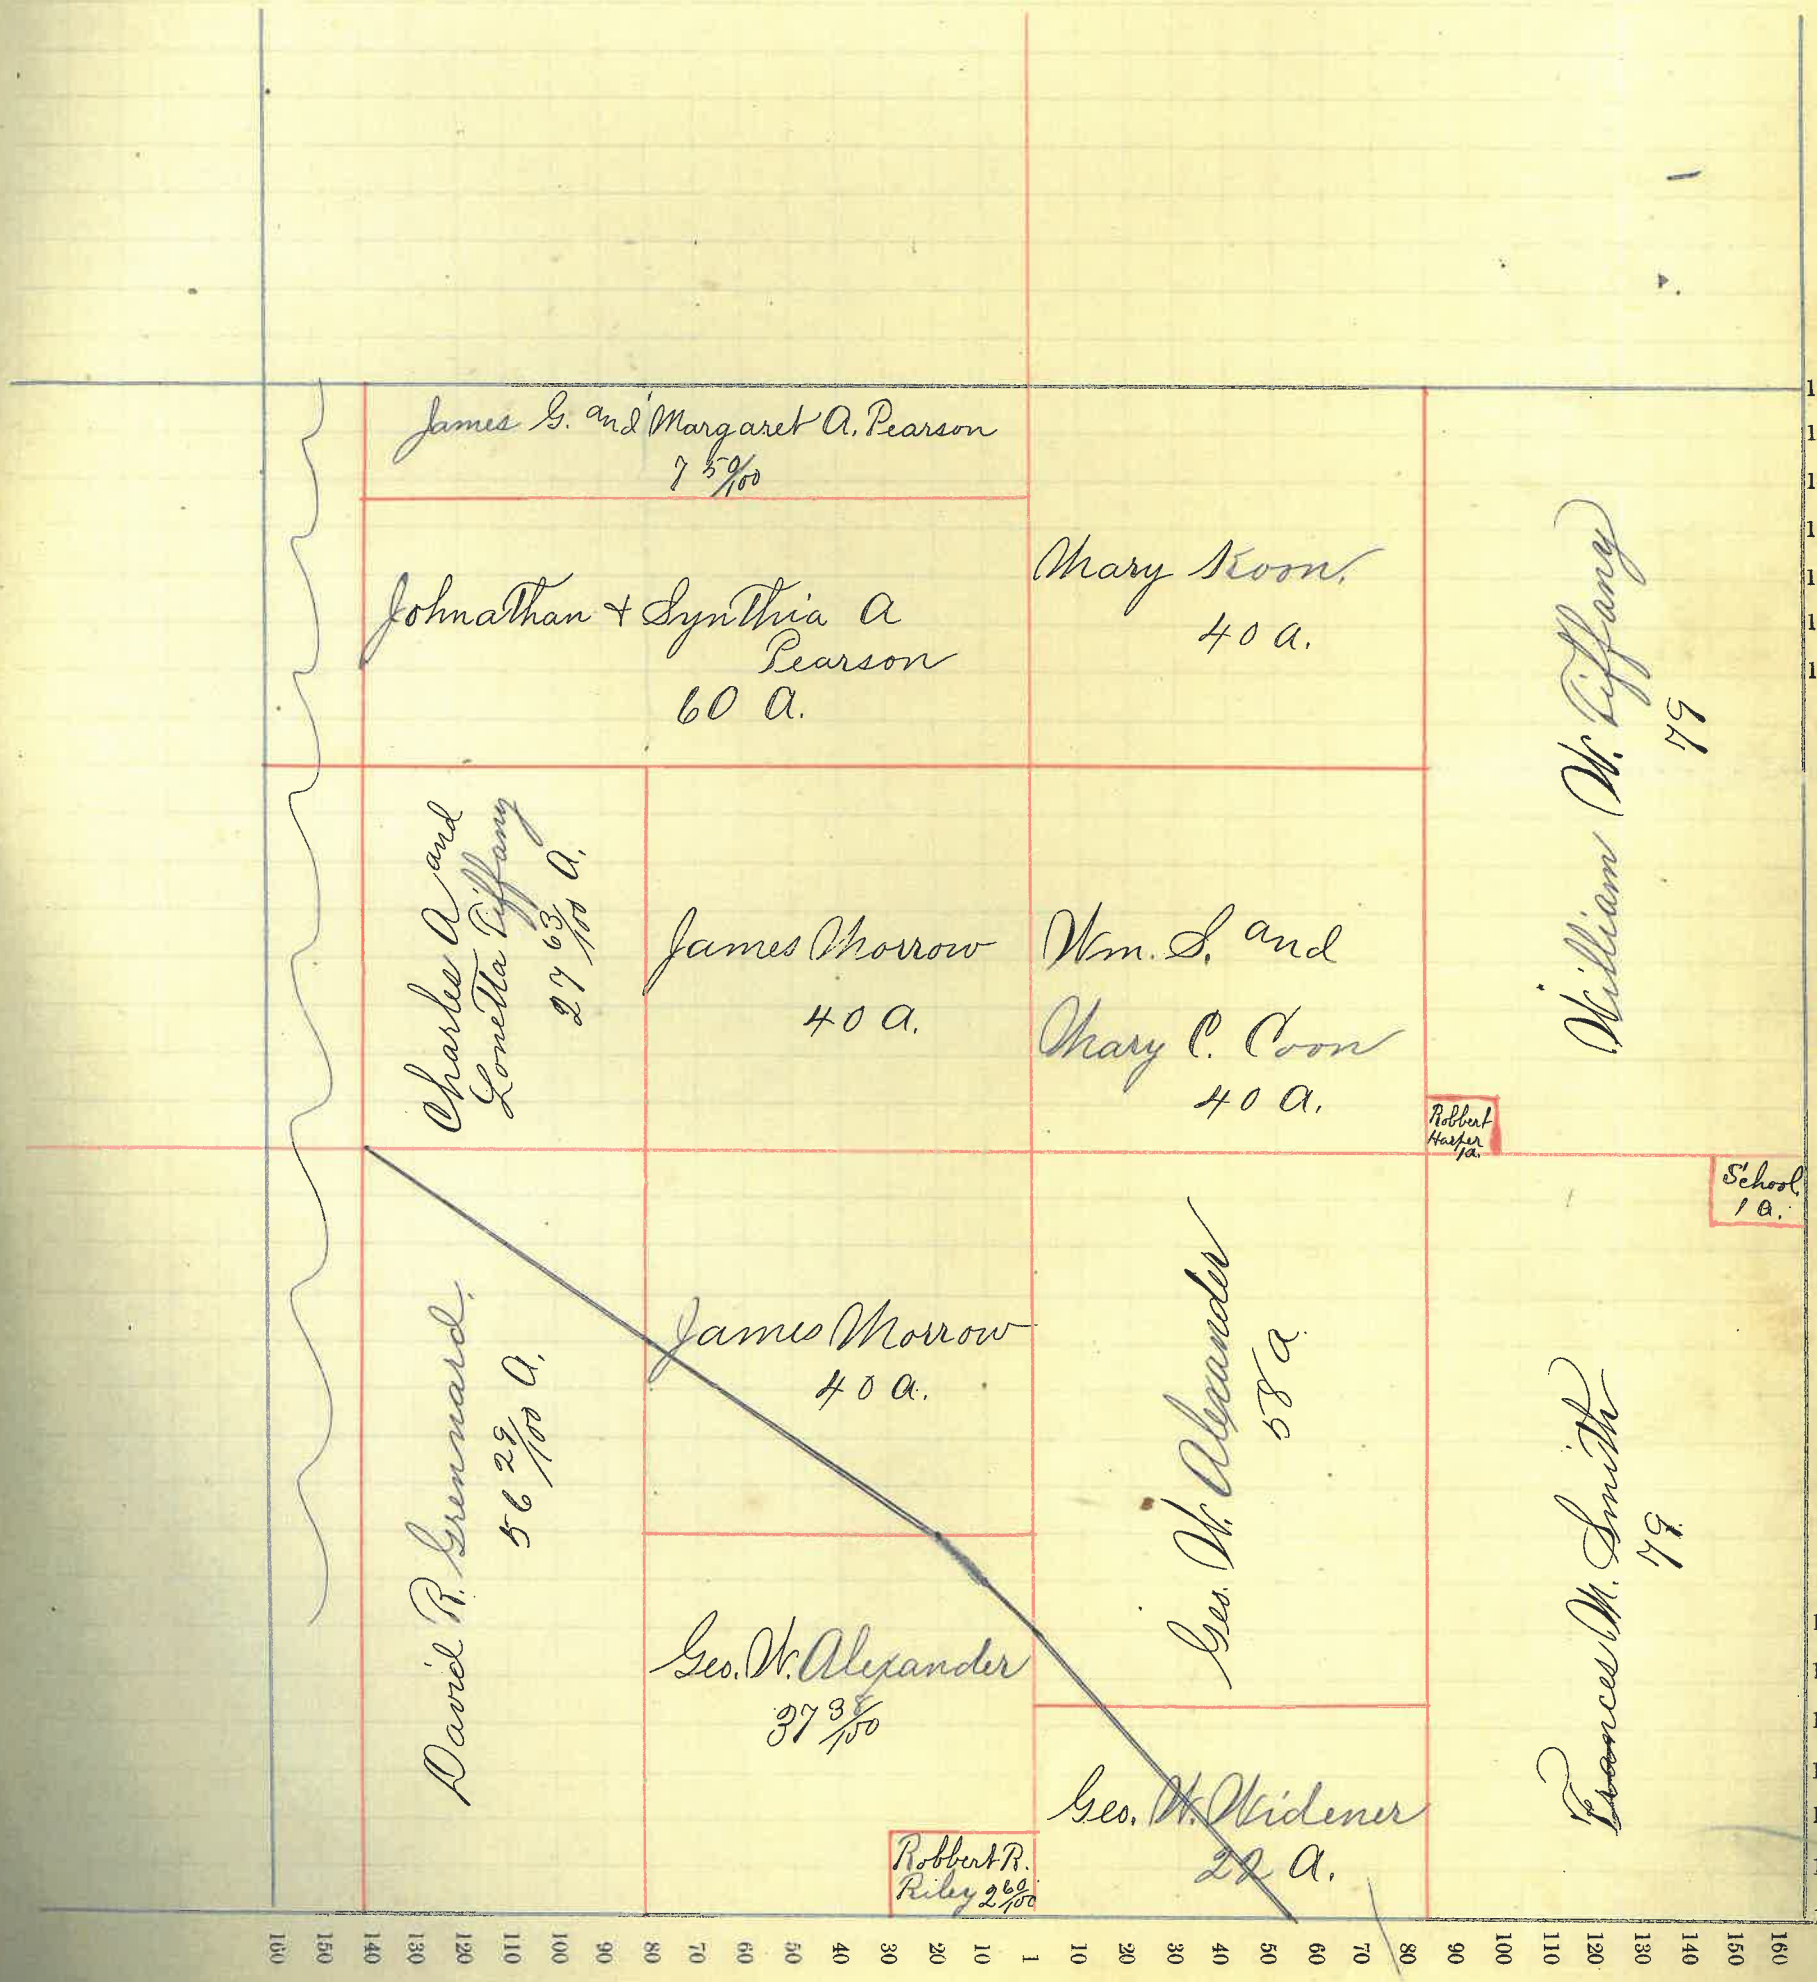 James G. and Margaret A. Pearson
7 50/100
Johnathan + Synthia A
Pearson
60 A.
Mary Koon.
40 A.
William W. Tiffany
79
Charles A and
Lonetta Tiffany
27 63/100 A.
James Morrow
40 A.
Wm. S. and
Mary C. Coon
40 A.
Robbert
Harper
1a.
School
1 A.
David R. Grennard.
56 29/100 A.
James Morrow
40 A.
Geo. W. Alexander
58 A
Frances M. Smith
79.
Geo. W. Alexander
37 38/100
Geo. W. Widener
22 A.
Robbert R.
Riley 2 60/100
160 150 140 130 120 110 100 90 80 70 60 50 40 30 20 10 1 10 20 30 40 50 60 70 80 90 100 110 120 130 140 150 160